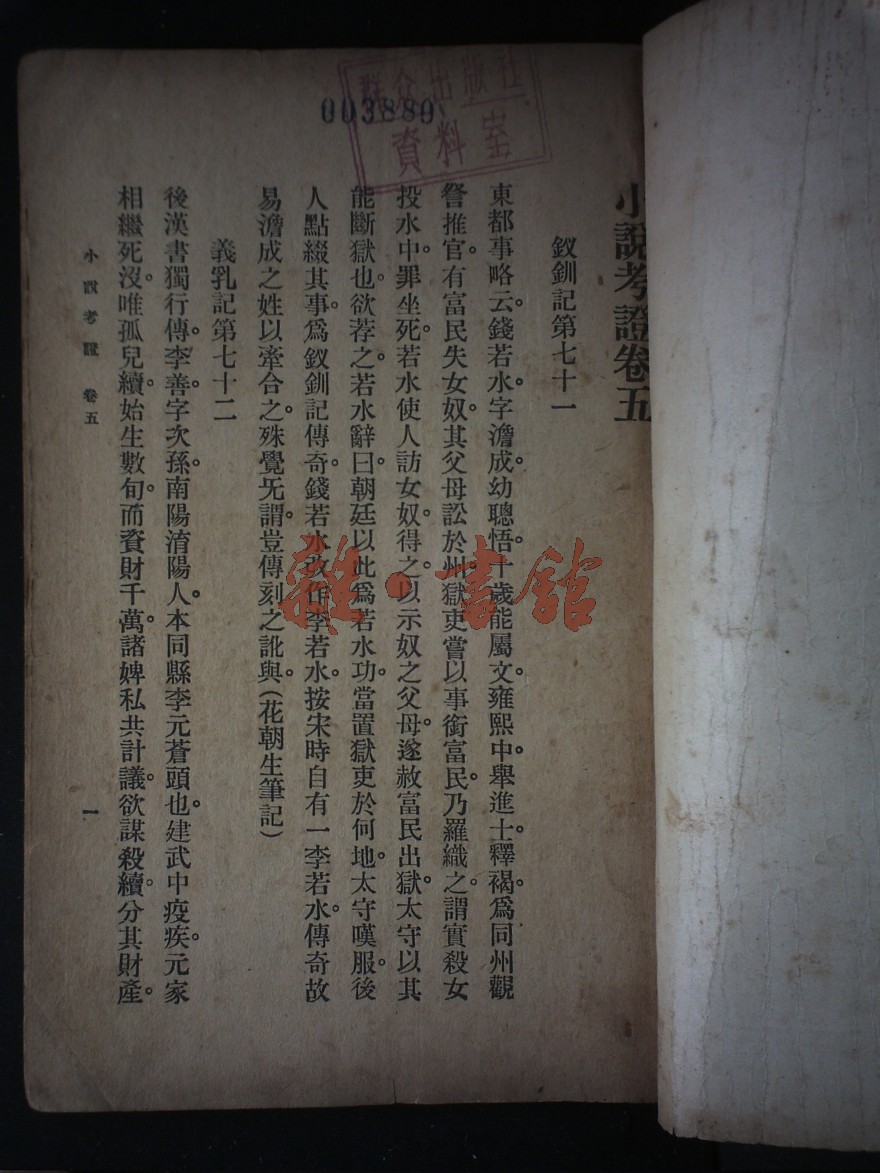 群众出版社
資料室
003880
小說考證卷五
釵釧記第七十一
東都事略云。錢若水。字澹成。幼聰悟。十歲能屬文。雍熙中。舉進士。釋褐。爲同州觀
詧推官。有富民失女奴。其父母訟於州。獄吏嘗以事銜富民。乃羅織之。謂實殺女
投水中。罪坐死。若水使人訪女奴。得之。以示奴之父母。遂赦富民出獄。太守以其
能斷獄也。欲荐之。若水辭曰。朝廷以此爲若水功。當置獄吏於何地。太守嘆服。後
人點綴其事。爲釵釧記傳奇。錢若水改作李若水。按宋時自有一李若水。傳奇故
易澹成之姓以牽合之。殊覺旡謂。豈傳刻之訛與。(花朝生筆記)
義乳記第七十二
後漢書獨行傳。李善。字次孫。南陽淯陽人。本同縣李元蒼頭也。建武中疫疾。元家
相繼死沒。唯孤兒續。始生數旬。而資財千萬。諸婢私共計議。欲謀殺續。分其財產。
小說考證 卷五
一
雜·書館